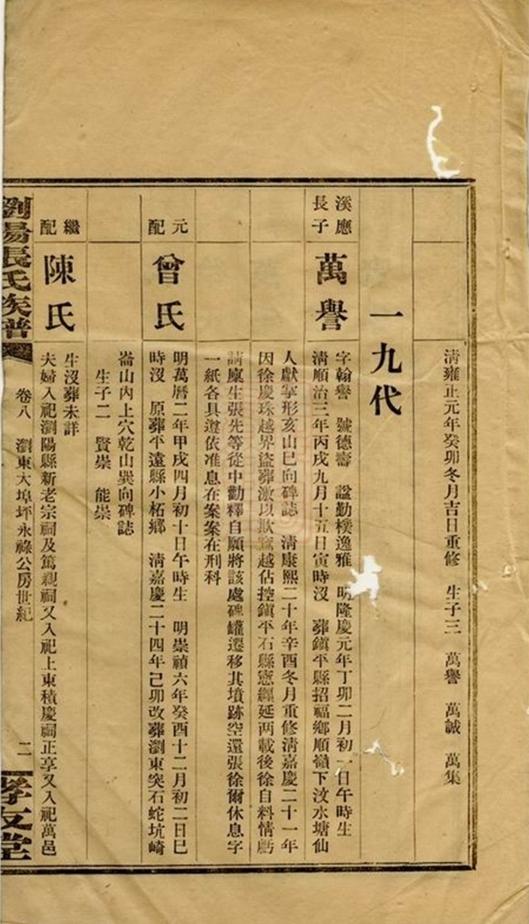 清雍正元年癸卯冬月吉日重修　生子三　萬譽　萬誠　萬集
一九代
溪應
長子
萬譽
字翰譽　號德壽　謚勤樸逸雅　明隆慶元年丁卯二月初一日午時生
清順治三年丙戌九月十五日寅時沒　葬鎮平縣招福鄉順嶺下汶水塘仙
人獻掌形亥山巳向碑誌　清康熙二十年辛酉冬月重修清嘉慶二十一年
因徐慶珠越界盜葬激以欺冢越佔控鎮平石縣憲纏延兩載後徐自料情虧
請廩生張先等從中勸釋自願將該處碑罐遷移其墳跡空還張徐爾休息字
一紙各具遵依准息在案案在刑科
元
配
曾氏
明萬曆二年甲戌四月初十日午時生　明崇禎六年癸酉十二月初二日巳
時沒　原葬平遠縣小柘鄉　清嘉慶二十四年己卯改葬瀏東突石蛇坑崎
崙山內上穴乾山巽向碑誌
生子二　賢崇　能崇
繼
配
陳氏
生沒葬未詳
夫婦入祀瀏陽縣新老宗祠及篤親祠又入祀上東積慶祠正享又入祀萬邑
瀏陽張氏族譜
卷八　瀏東大埠坪永祿公房世紀
二
孝友堂